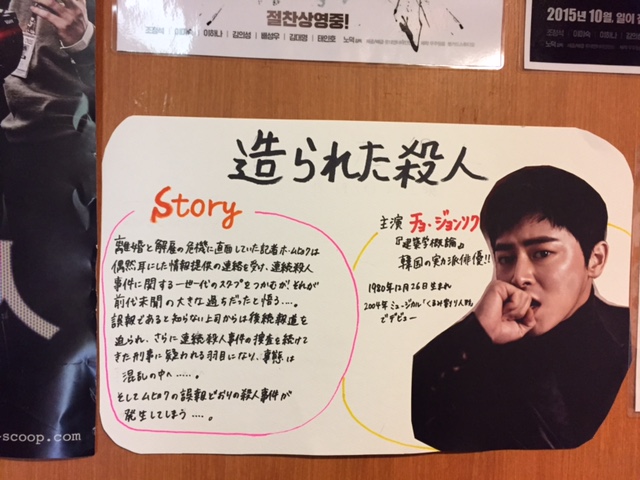 절찬상영중!
조정석 | 이미숙 | 이하나 | 김의성 | 배성우 | 김대명 | 태인호 | 노덕 감독
2015년 10월,
조정석 | 이미숙 | 이하나
造られた殺人
Story
離婚と解雇の危機に直面していた記者ホ・ムヒョクは
偶然耳にした情報提供の連絡を受け、連続殺人
事件に関する一世一代のスクープをつかむが、それが
前代未聞の大きな過ちだったと悟る…。
誤報であると知らない上司からは後続報道を
迫られ、さらに連続殺人事件の捜査を続けて
きた刑事に疑われる羽目になり、事態は
混乱の中へ……。
そしてムヒョクの誤報どおりの殺人事件が
発生してしまう….。
主演 チョ・ジョンソク
『建築学概論』
韓国の実力派俳優!!
1980年12月26日生まれ
2004年ミュージカル「くるみ割り人形」
でデビュー
-scoop.com